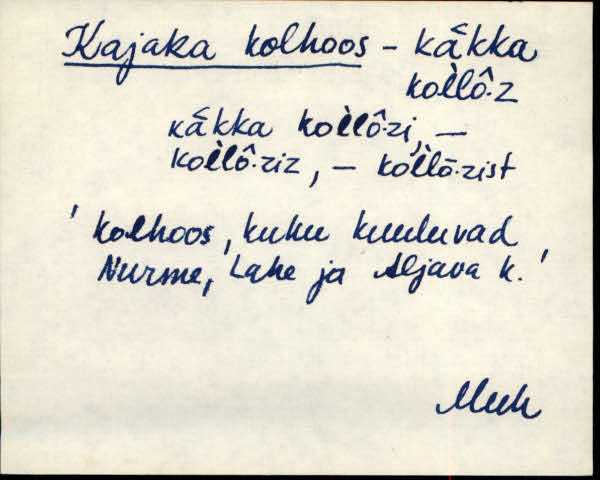 Kajaka kolhoos – kǎkka
kol̀lô·z
kǎkka kol̀lô·zi, —
kol̀lô·ziz, — kol̀lō·zist
' kolhoos, kuhu kuuluvad
Nurme, Lahe ja Aljava k. '
Muh